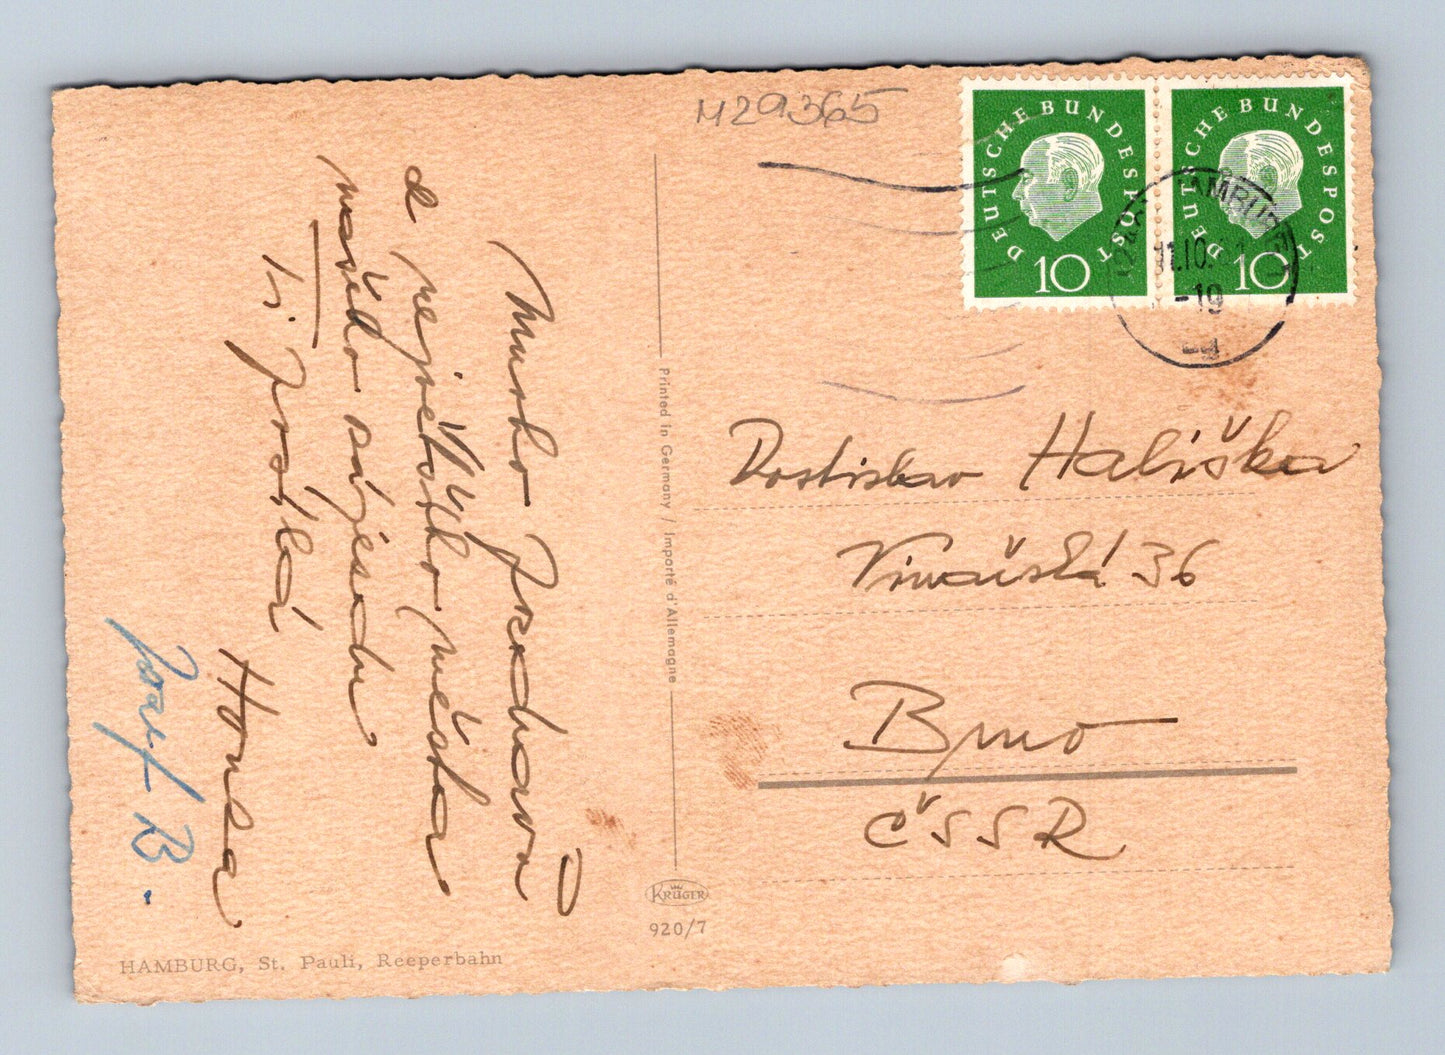 M29365
DEUTSCHE BUNDESPOST
10
DEUTSCHE BUNDESPOST
10
HAMBURG
11.10.
-19
Mnoho pozdravů
z největšího města
našeho zájezdu
ti posílá
Honza
Josef B-
Printed in Germany / Importé d'Allemagne
Rostislav Hališka
Vinařská 36
Brno
ČSSR
KRÜGER
920/7
HAMBURG, St. Pauli, Reeperbahn